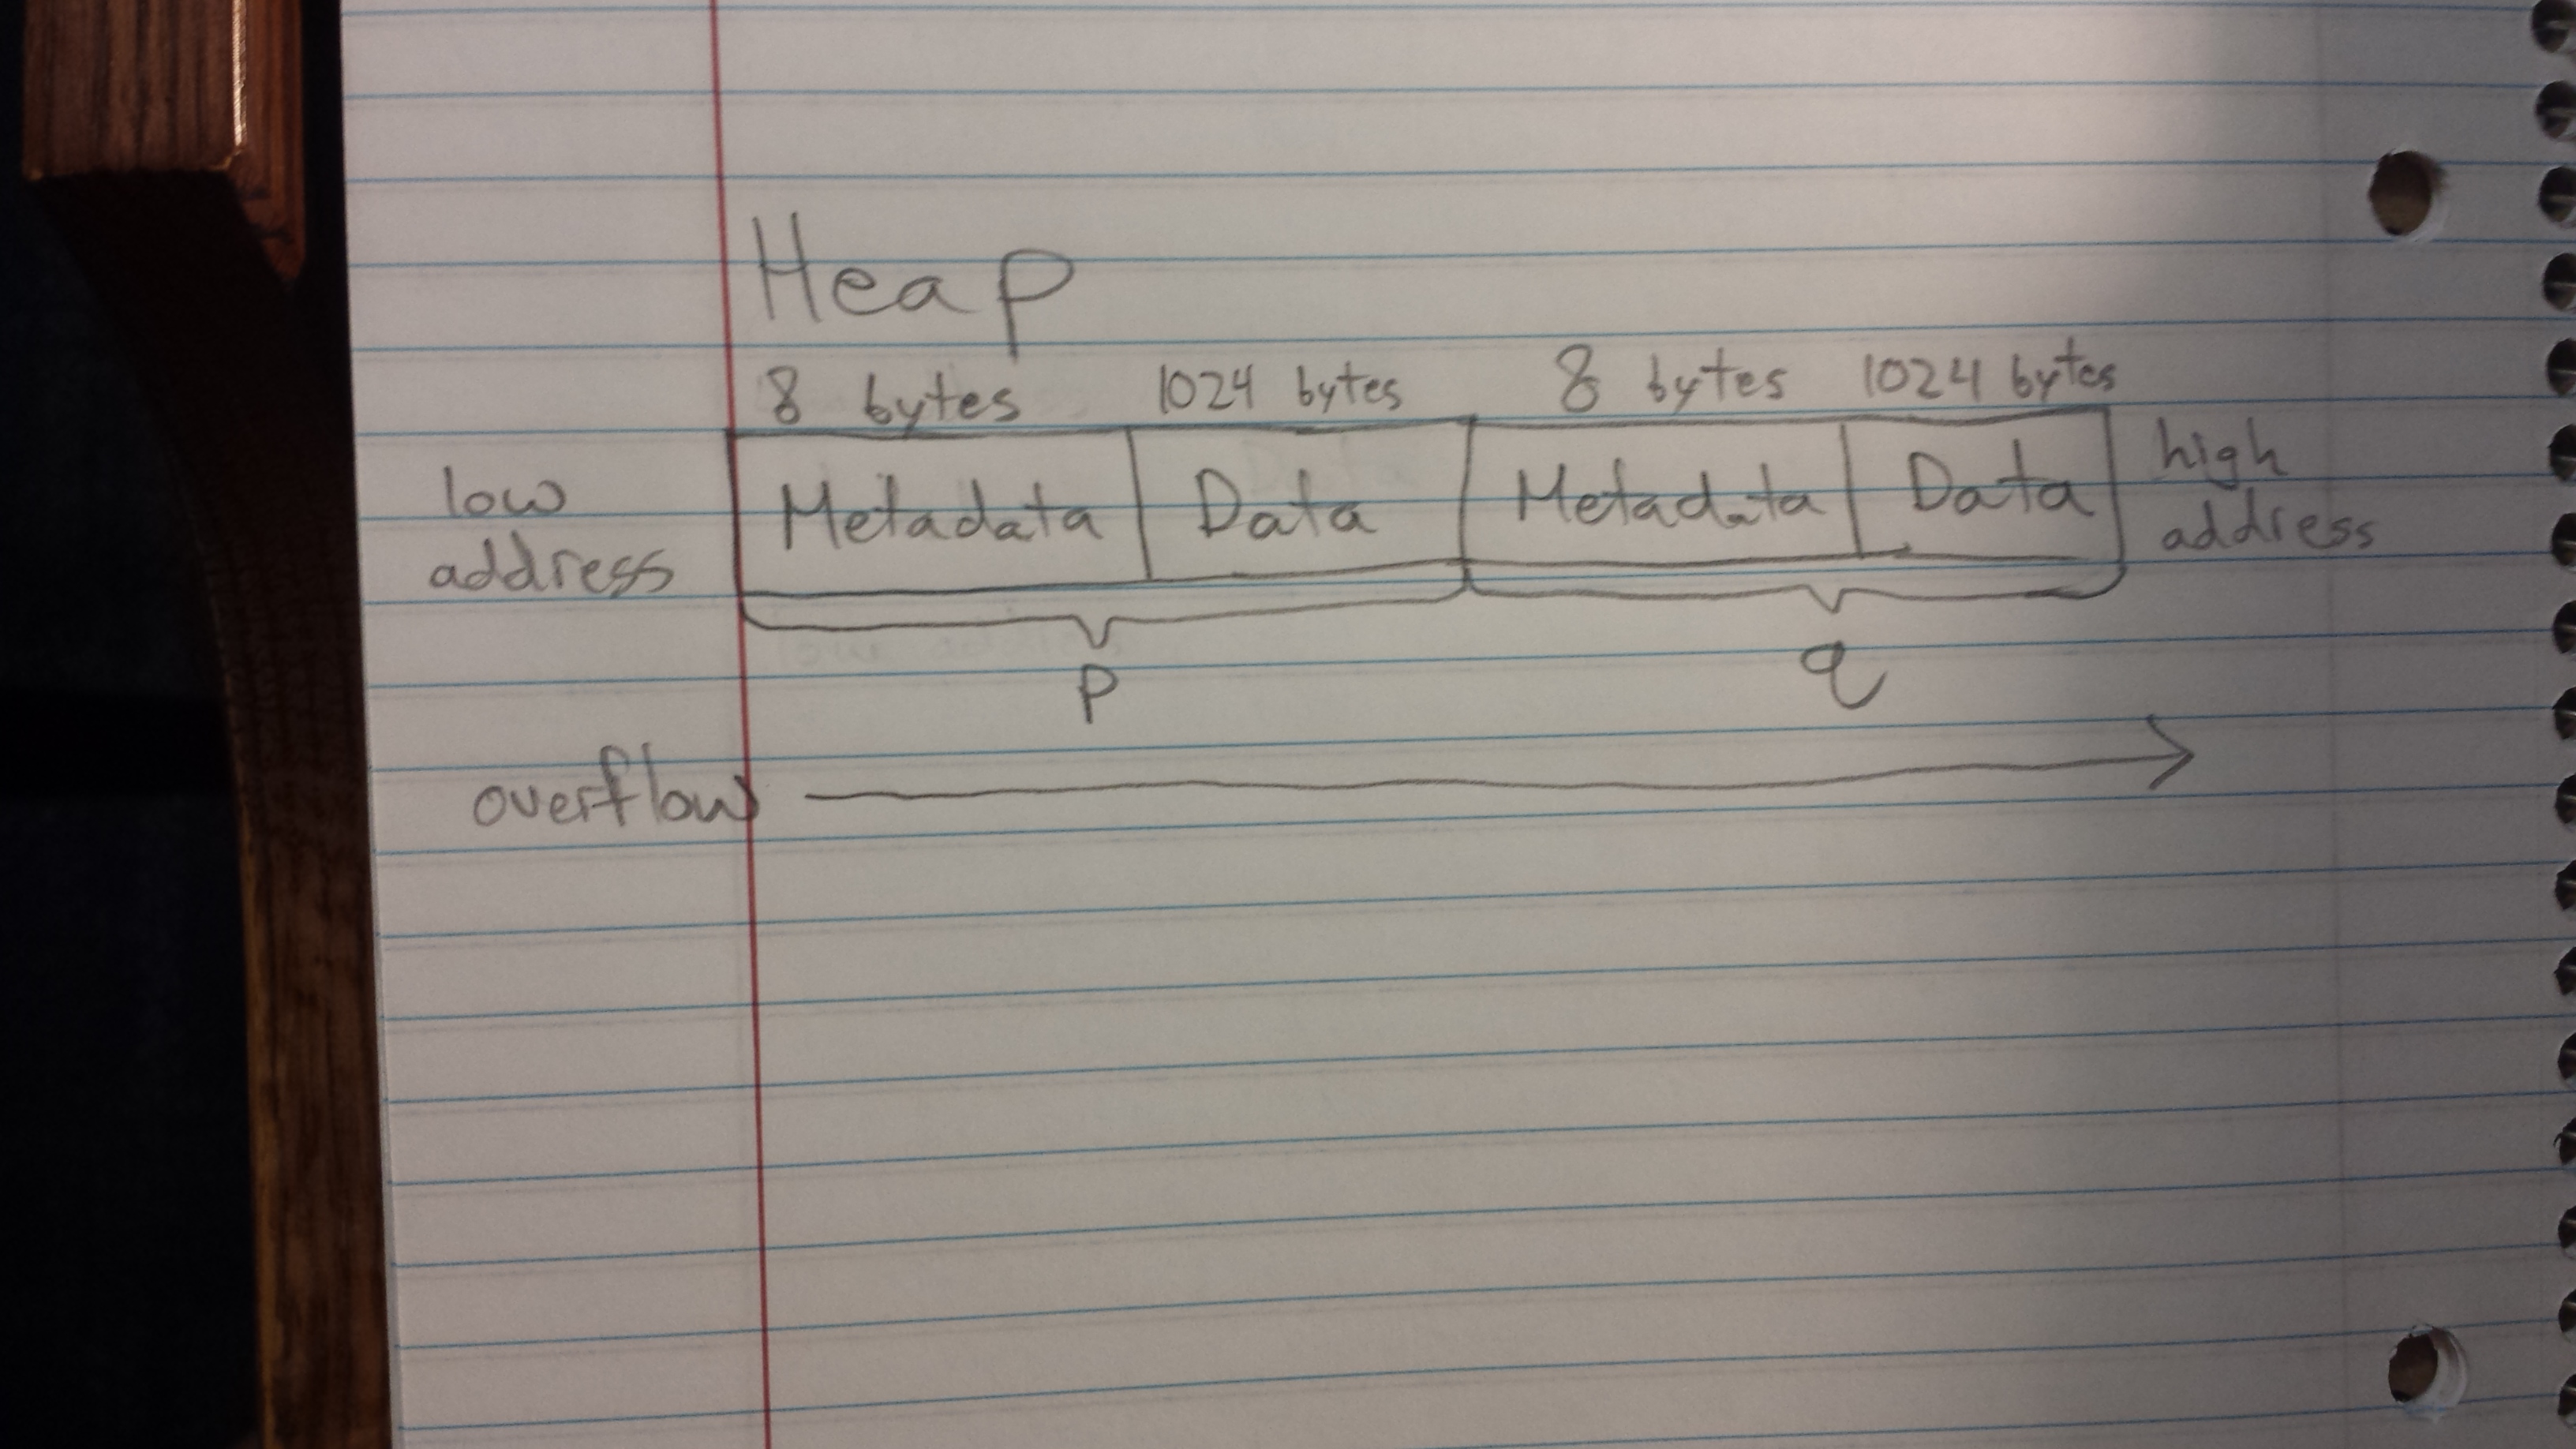 Heap
8 bytes 1024 bytes 8 bytes 1024 bytes
low address Metadata Data Metadata Data high address
p q
overflow